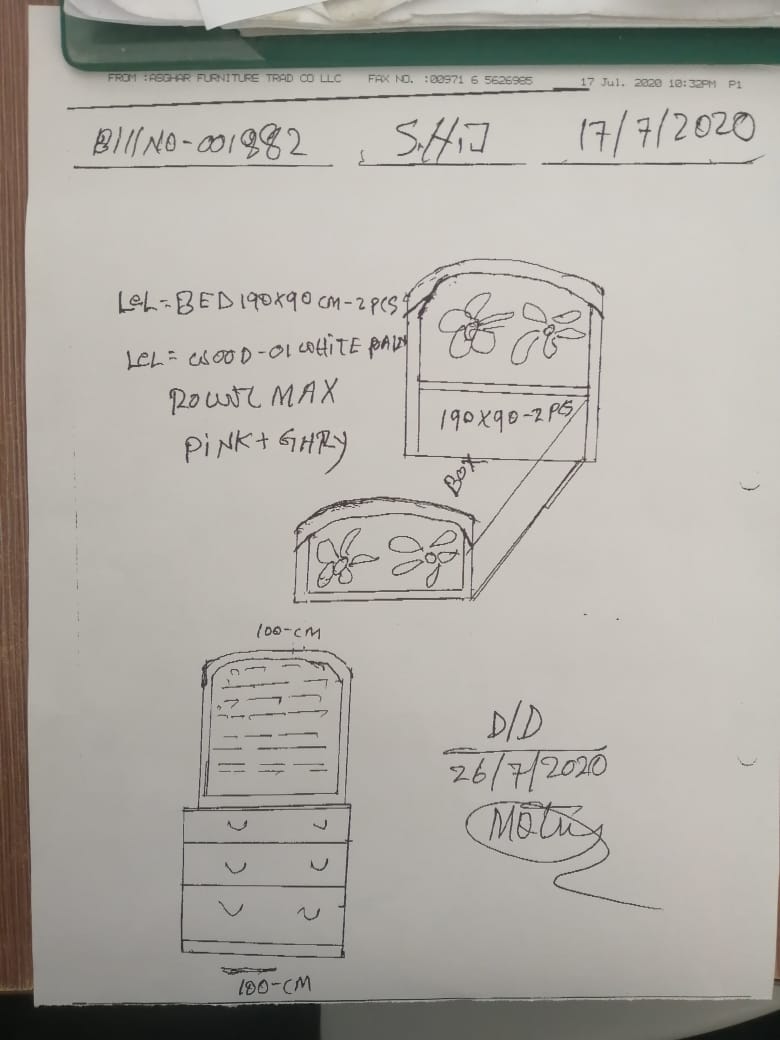 FROM :ASGHAR FURNITURE TRAD CO LLC FAX NO. :00971 6 5626985 17 Jul. 2020 10:32PM P1
Bill NO-001882 S.H.J 17/7/2020
LCL=BED 190X90 CM-2PCS
LCL= WOOD-01 WHITE
MAX
PINK+GHRY
190X90-2PCS
BOX
100-CM
D/D
26/7/2020
100-CM